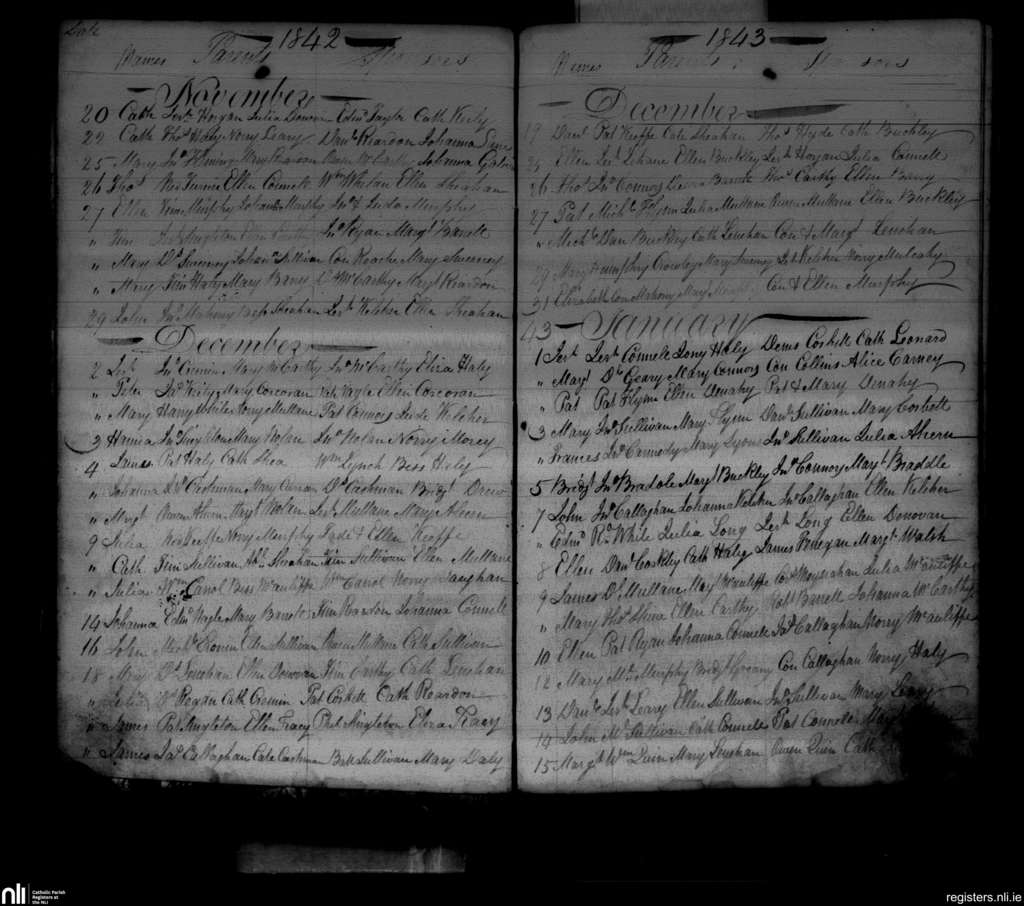 Date
1842
Names Parents Sponsors
November
20 Cath Jer. Hogan Julia Donovan Edm Taylor Cath Kiely
22 Cath Thos Haly Norry Leary Danl Reardon Johanna
25 Mary Jno Mary Reardon Owen McCarthy Johanna
26 Thos Ellen Connell Wm Whelan Ellen Sheahan
27 Ellen Murphy Johana Murphy Jno & Murphy
" Tim Singleton Jno Ryan Margt Barrett
" Mary Dl Sweeney Johan Sullivan Con Roache Mary Sweeney
" Mary Tim Hary Mary Barry McCarthy Margt Reardon
29 John Jno Mahony Sheahan Jer. Kelcher Ellen Sheahan
December
2 Jer. Jno Cronin Mary McCarthy Jno McCarthy Eliza Haly
" Peter Jno Kiely Mary Corcoran Nagle Ellen Corcoran
" Mary Harry White Norry Mullane Pat Connors Jude Kelcher
3 Hanna Jno Singleton Mary Nolan Jno Nolan Norry Morey
4 James Pat Haly Cath Shea Wm Lynch Bess Haly
" Johanna Dl Cashman Mary Curran Dl Cashman Bridgt Drew
" Margt Owen Ahern Margt Nolan Jer. Mullane Mary Ahern
9 Julia Keeffe Norry Murphy Jude & Ellen Keeffe
" Cath Tim Sullivan Sheahan Tim Sullivan Ellen Mullane
" Julian Wm Carol Bess McAuliffe Wm Carol Norry Vaughan
14 Johanna Edm Nagle Mary Barrett Tim Reardon Johanna Connell
16 John Michl Cronin Ellen Sullivan Owen Cath Sullivan
18 Mary Dl Lenehan Ellen Donovan Tim Carthy Cath Lenehan
" Julia Regan Cath Cremin Pat Corbett Cath Reardon
" James Pat Singleton Ellen Tracy Phil Singleton Eliza Tracy
" James Jas Callaghan Cate Cashman Batt Sullivan Mary Daly
1843
Names Parents Sponsors
December
19 Danl Pat Keeffe Cate Sheahan Thos Hyde Cath Buckley
25 Ellen Jer. Lehane Ellen Buckley Jer. Hogan Julia Connell
26 Thos Jno Connors Barrett Thos Carthy Ellen Barry
27 Pat Michl Flynn Julia Mullane Mullane Ellen Buckley
" Michl Dan Buckley Cath Lenehan Con & Margt Lenehan
29 Mary Humphry Crowley Mary Jer. Kelcher Norry Mulcahy
31 Elizabeth Con Mahony Mary Con & Ellen Murphy
43 January
1 Jer. Jer. Connell Long Haly Denis Corbett Cath Leonard
" Margt Dl Geary Mary Connors Con Collins Alice Carney
" Pat Pat Flynn Ellen Denahy Pat & Mary Denahy
3 Mary Jno Sullivan Mary Flynn Danl Sullivan Mary Corbett
" Frances Jno Carmody Mary Lyons Jno Sullivan Julia Ahern
5 Bridgt Jno Braddle Margt Buckley Jno Connors Margt Braddle
7 John Jno Callaghan Johanna Kelcher Jno Callaghan Ellen Kelcher
" Edmd White Julia Long Jer. Long Ellen Donovan
8 Ellen Danl Coakley Cath Haly James Finegan Margt Walsh
9 James Dl Mullane Margt McAuliffe Con Moynahan Julia McAuliffe
" Mary Thos Shine Ellen Carthy Robt Barrett Johanna McCarthy
10 Ellen Pat Ryan Johanna Connell Jas Callaghan Norry McAuliffe
12 Mary Murphy Bridgt Greany Con Callaghan Norry Haly
13 Danl Jer. Leary Ellen Sullivan Jno Sullivan Mary Leary
14 John Sullivan Cath Connell Pat Connell Mary
15 Margt Wm Quin Mary Lenehan Owen Quin Cath
nli Catholic Parish
Registers at
the NLI
registers.nli.ie